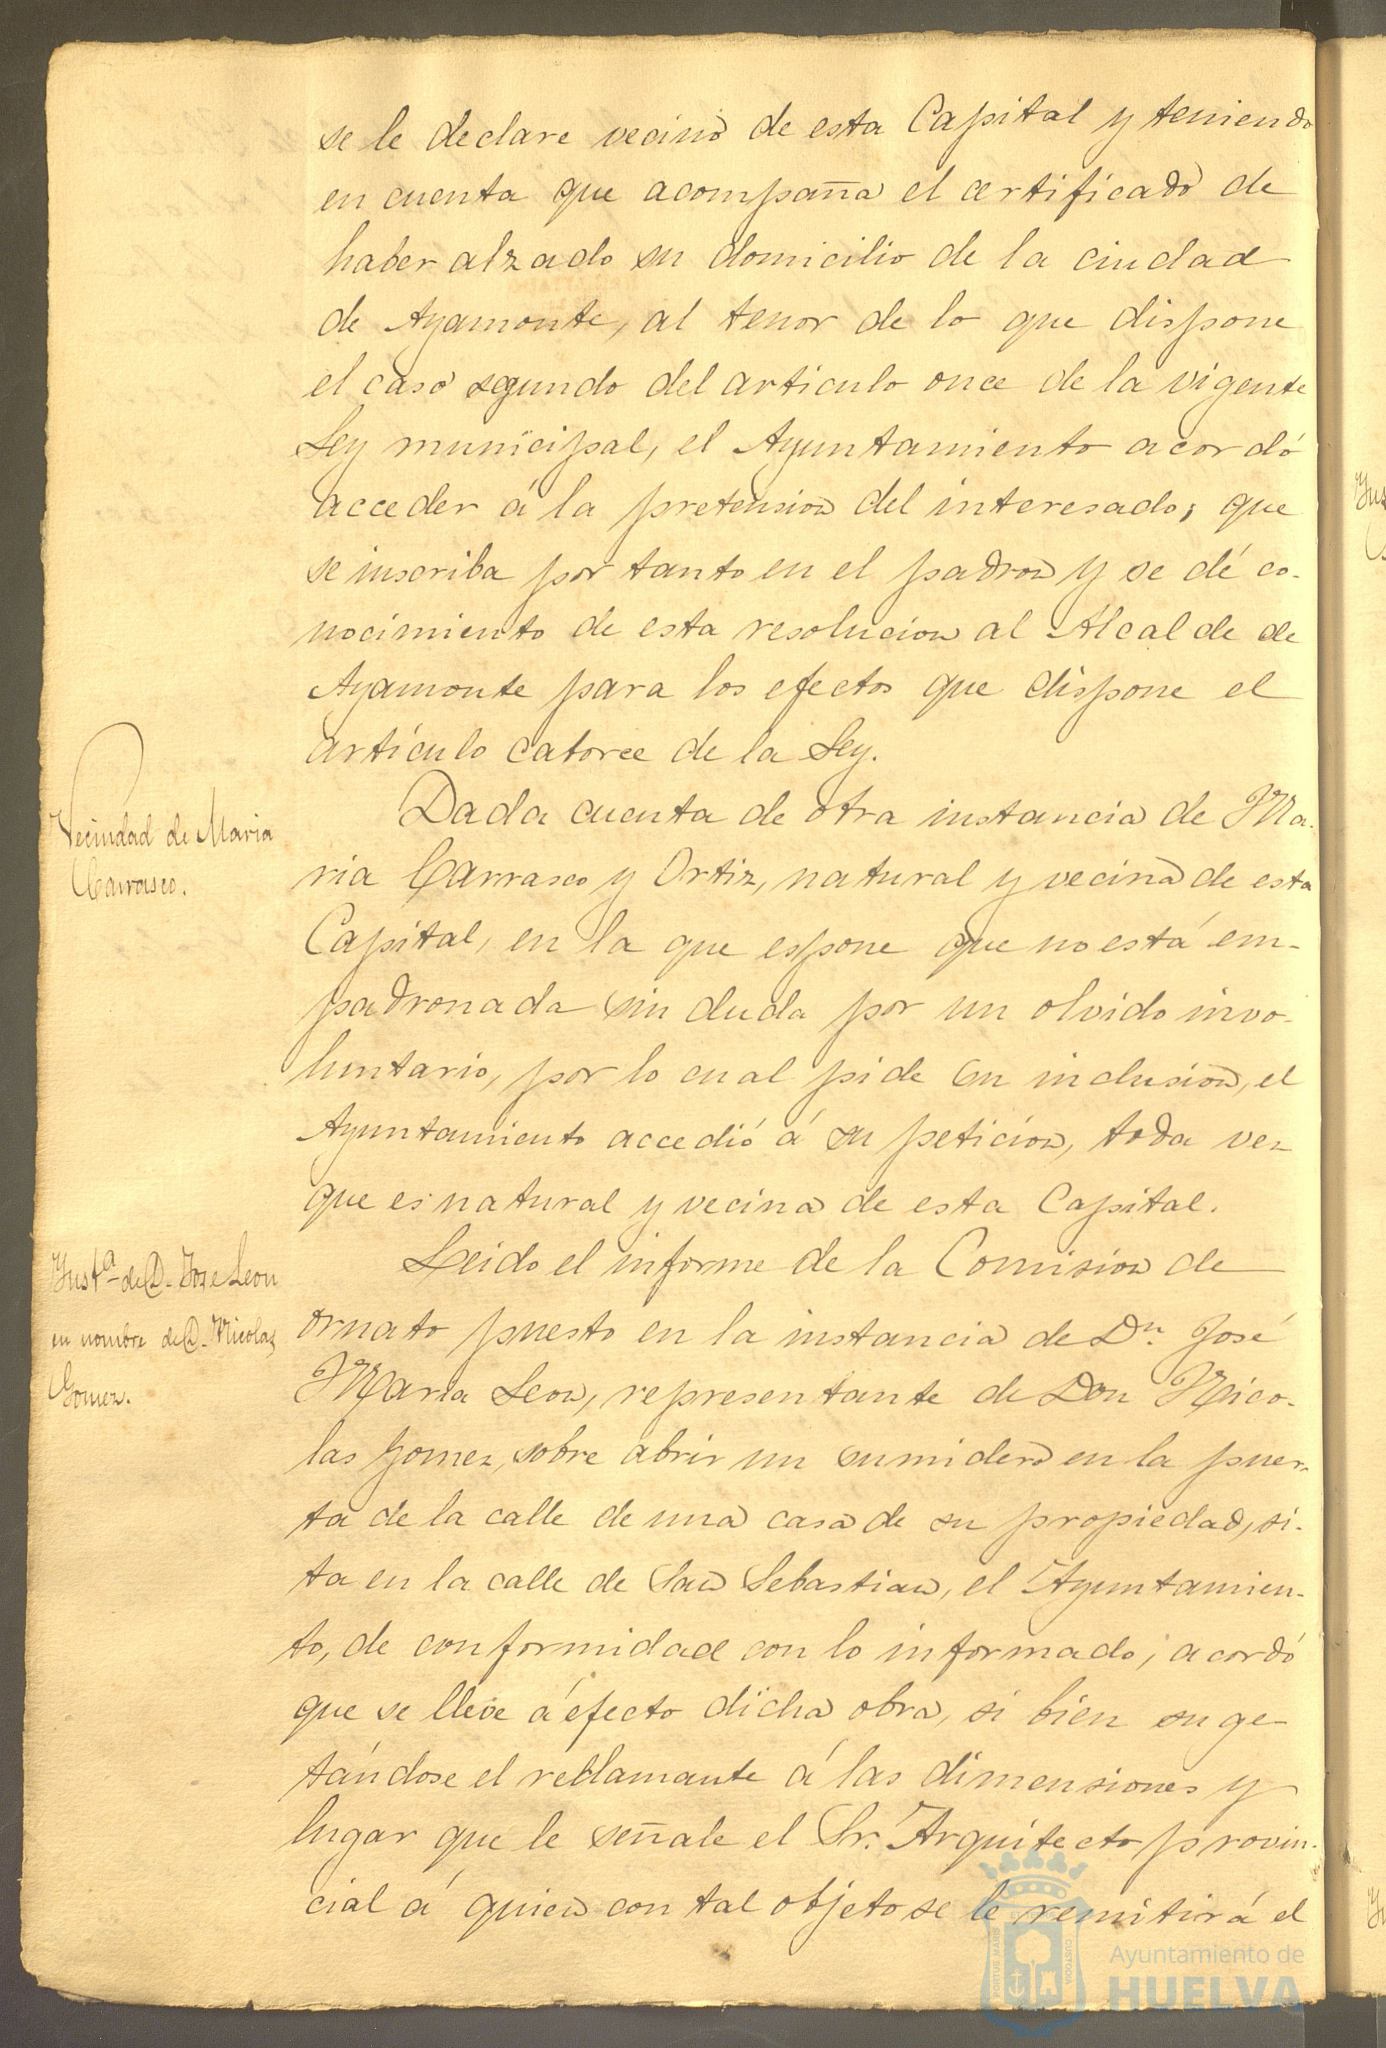 se le declare vecino de esta Capital y teniendo
en cuenta que acompaña el certificado de
haber alzado su domicilio de la ciudad
de Ayamonte, al tenor de lo que dispone
el caso segundo del articulo once de la vigente
Ley municipal, el Ayuntamiento acordó
acceder á la pretension del interesado; que
se inscriba por tanto en el padron y se dé co-
nocimiento de esta resolucion al Alcalde de
Ayamonte para los efectos que dispone el
artículo catorce de la Ley.
Vecindad de Maria
Carrasco.
Dada cuenta de otra instancia de Ma-
ria Carrasco y Ortiz, natural y vecina de esta
Capital, en la que espone que no está em-
padronada sin duda por un olvido invo-
luntario, por lo cual pide su inclusion, el
Ayuntamiento accedió á su peticion, toda vez
que es natural y vecina de esta Capital.
Instª de D. Jose Leon
en nombre de D. Nicolas
Gomez.
Leido el informe de la Comision de
ornato puesto en la instancia de Dn. José
Maria Leon, representante de Don Nico-
las Gomez, sobre abrir un sumidero en la puer-
ta de la calle de una casa de su propiedad, si-
ta en la calle de San Sebastian, el Ayuntamien-
to, de conformidad con lo informado, acordó
que se lleve á efecto dicha obra, si bien suge-
tándose el reclamante á las dimensiones y
lugar que le señale el Sr. Arquitecto provin-
cial á quien con tal objeto se le remitirá el
PORTUS MARIS
CUSTODIA
Ayuntamiento de
HUELVA